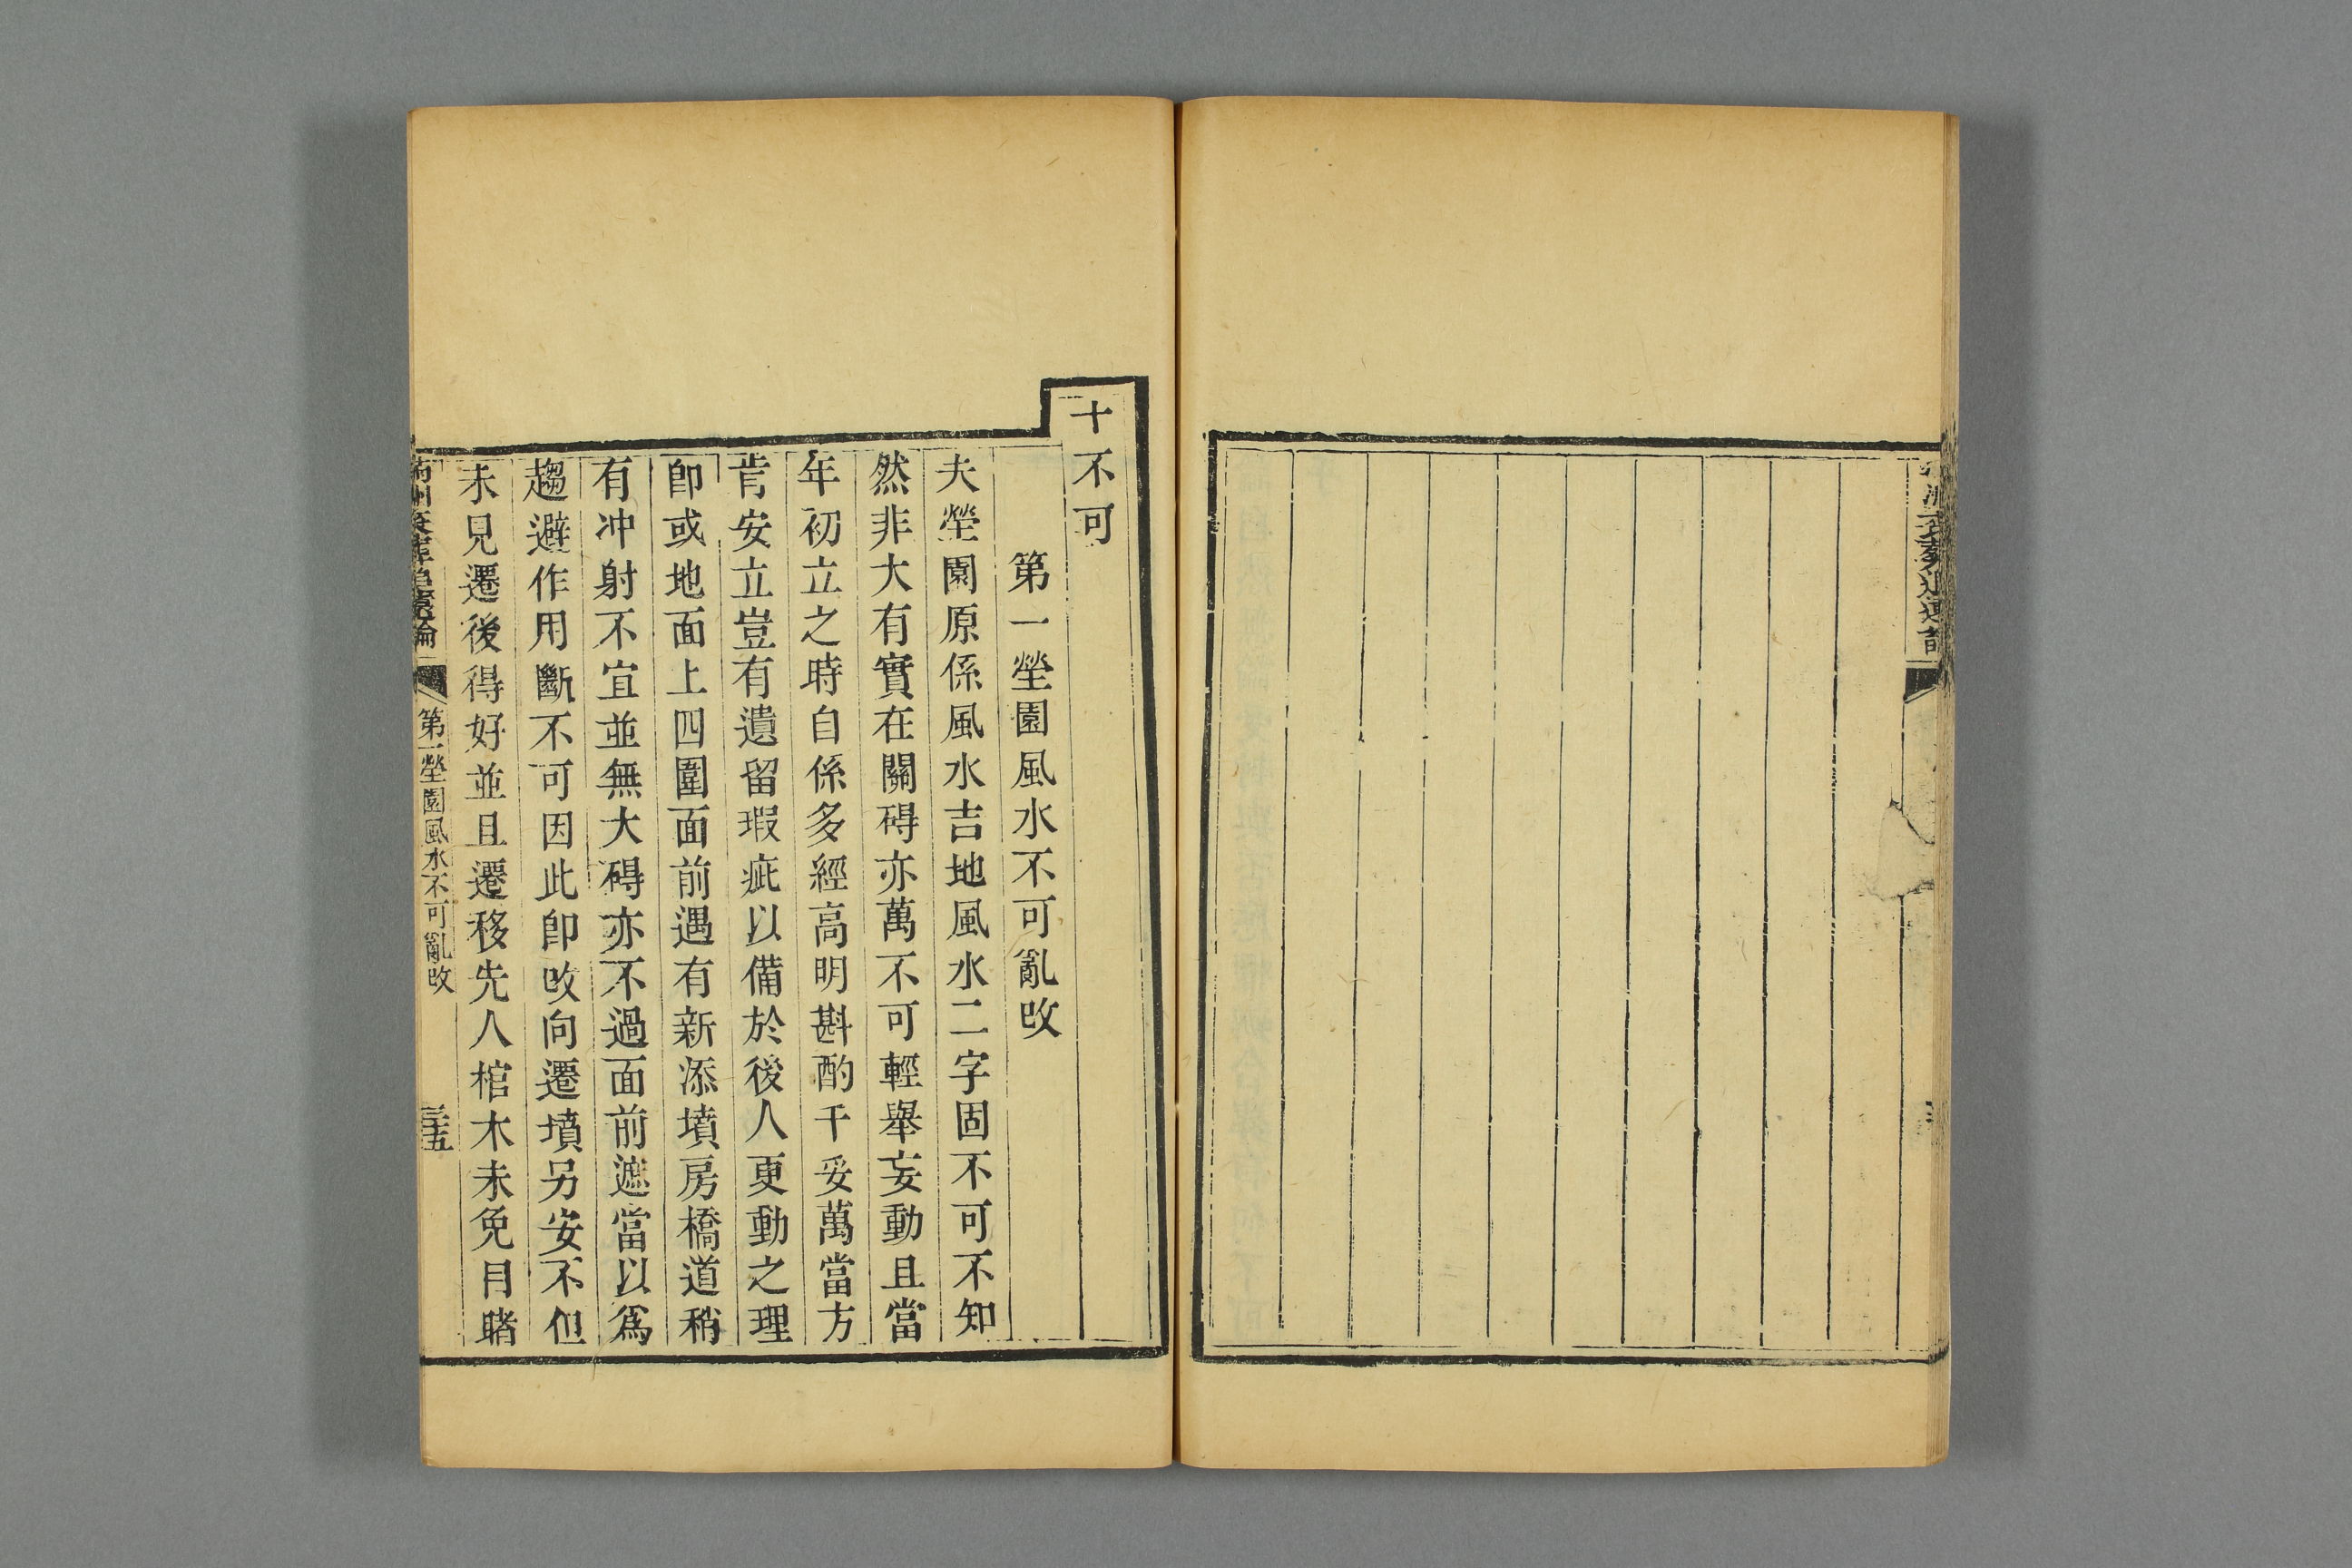 十不可
第一塋園風水不可亂改
夫塋園原係風水吉地風水二字固不可不知
然非大有實在關碍亦萬不可輕舉妄動且當
年初立之時自係多經高明斟酌干妥萬當方
肯安立豈有遺留瑕疵以備於後人更動之理
卽或地面上四圍面前遇有新添墳房橋道稍
有冲射不宜並無大碍亦不過面前遮當以爲
趨避作用斷不可因此卽改向遷墳另安不但
未見遷後得好並且遷移先人棺木未免目睹
第一塋園風水不可亂改
三十五